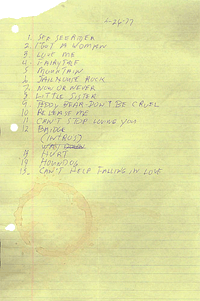 4-26-77
1. SEE SEE RIDER
2. I GOT A WOMAN
3. LOVE ME
4. FAIRYTALE
5. MOUNTAIN
6. JAILHOUSE ROCK
7. NOW OR NEVER
8. LITTLE SISTER
9. TEDDY BEAR-DON'T BE CRUEL
10. RELEASE ME
11. CAN'T STOP LOVING YOU
12. BRIDGE
(INTROS)
WAY
HURT
HOUNDOG
15. CAN'T HELP FALLING IN LOVE